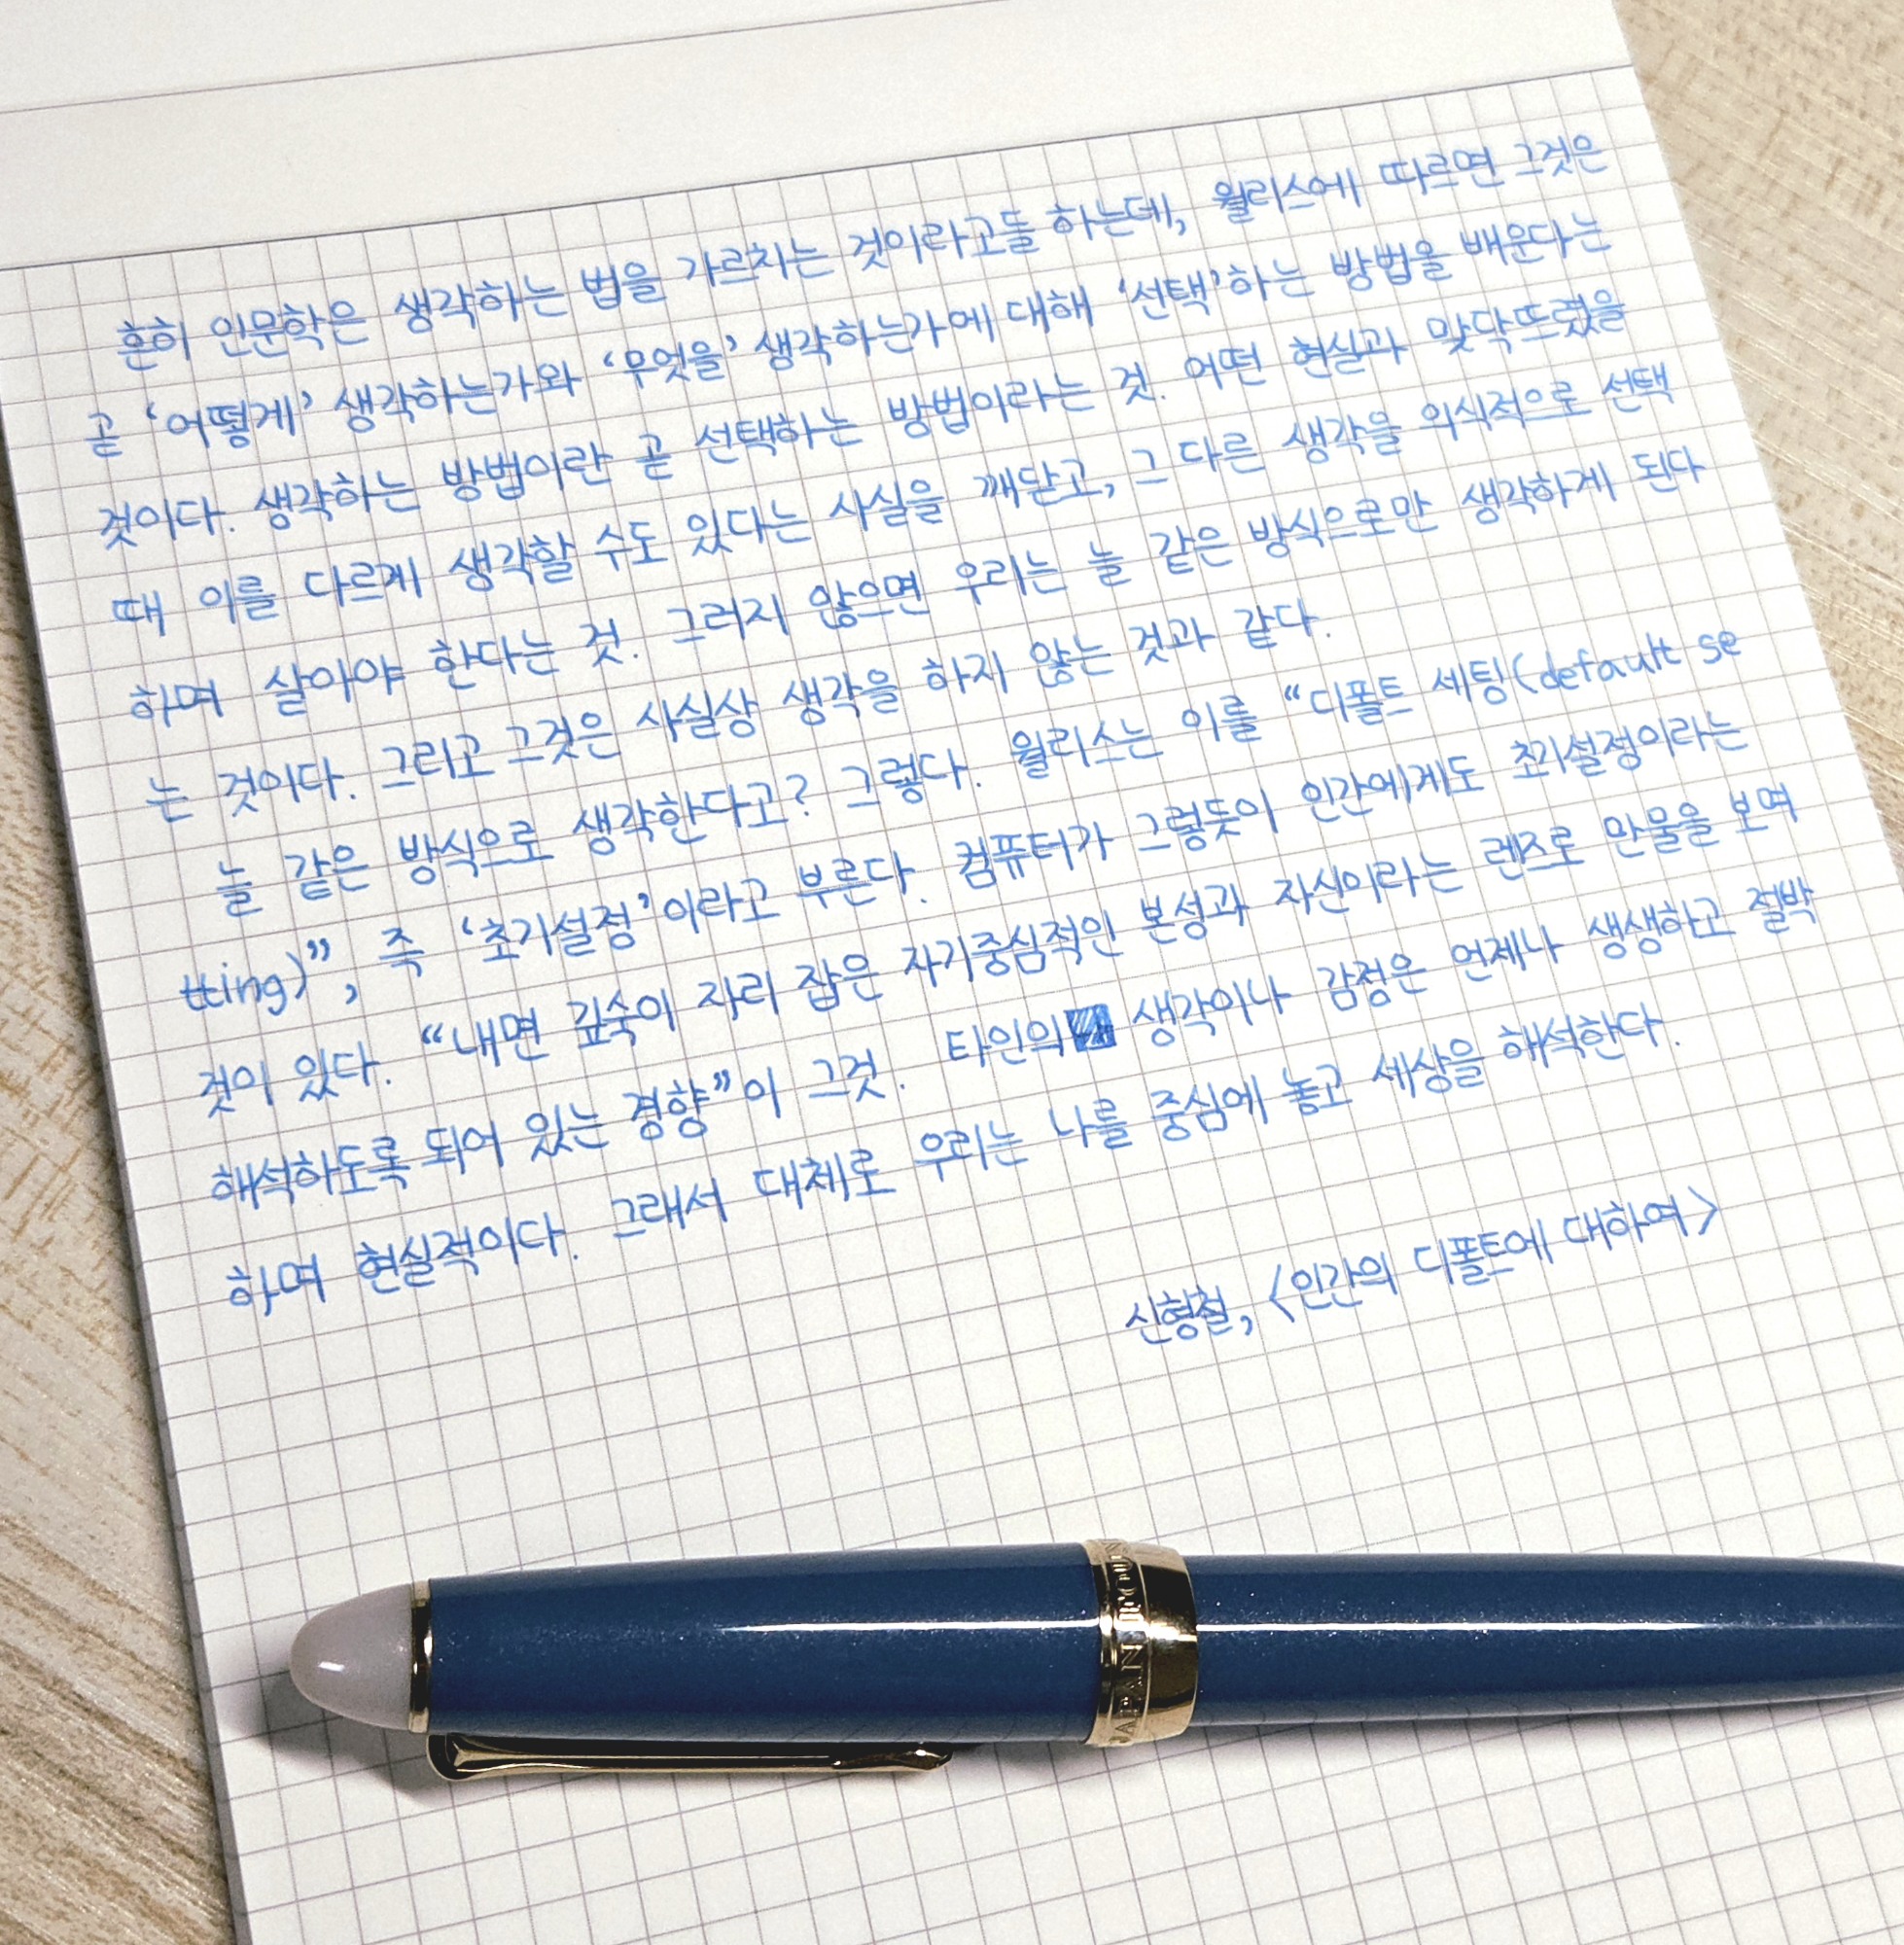 흔히 인문학은 생각하는 법을 가르치는 것이라고들 하는데, 월리스에 따르면 그것은
곧 ‘어떻게’ 생각하는가와 ‘무엇을’ 생각하는가에 대해 ‘선택’하는 방법을 배운다는
것이다. 생각하는 방법이란 곧 선택하는 방법이라는 것. 어떤 현실과 맞닥뜨렸을
때 이를 다르게 생각할 수도 있다는 사실을 깨닫고, 그 다른 생각을 의식적으로 선택
하며 살아야 한다는 것. 그러지 않으면 우리는 늘 같은 방식으로만 생각하게 된다
는 것이다. 그리고 그것은 사실상 생각을 하지 않는 것과 같다.
늘 같은 방식으로 생각한다고? 그렇다. 월리스는 이를 “디폴트 세팅(default se
tting)”, 즉 ‘초기설정’이라고 부른다. 컴퓨터가 그렇듯이 인간에게도 초기설정이라는
것이 있다. “내면 깊숙이 자리 잡은 자기중심적인 본성과 자신이라는 렌즈로 만물을 보며
해석하도록 되어 있는 경향”이 그것. 타인의 생각이나 감정은 언제나 생생하고 절박
하며 현실적이다. 그래서 대체로 우리는 나를 중심에 놓고 세상을 해석한다.
신형철, <인간의 디폴트에 대하여>
JAPAN FOUN